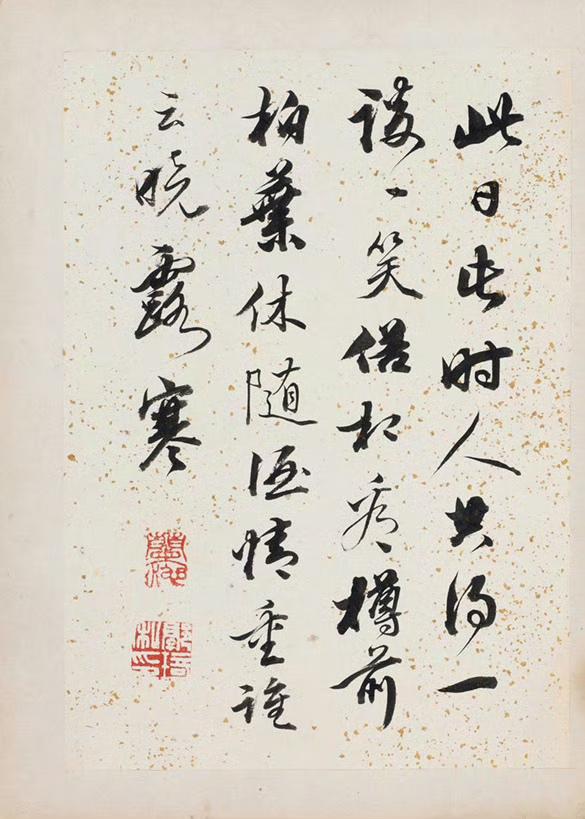 此日此时人共得一
談一笑俗相看樽前
柏葉休随酒情重誰
云曉露寒